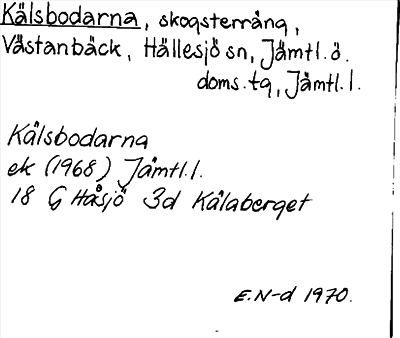 Kälsbodarna, skogsterräng,
Västanbäck, Hällesjö sn, Jämtl. ö.
doms. tg, Jämtl. l.
Kälsbodarna
ek (1968) Jämtl. l.
18 G Håsjö 3d Kälaberget
E.N-d 1970.